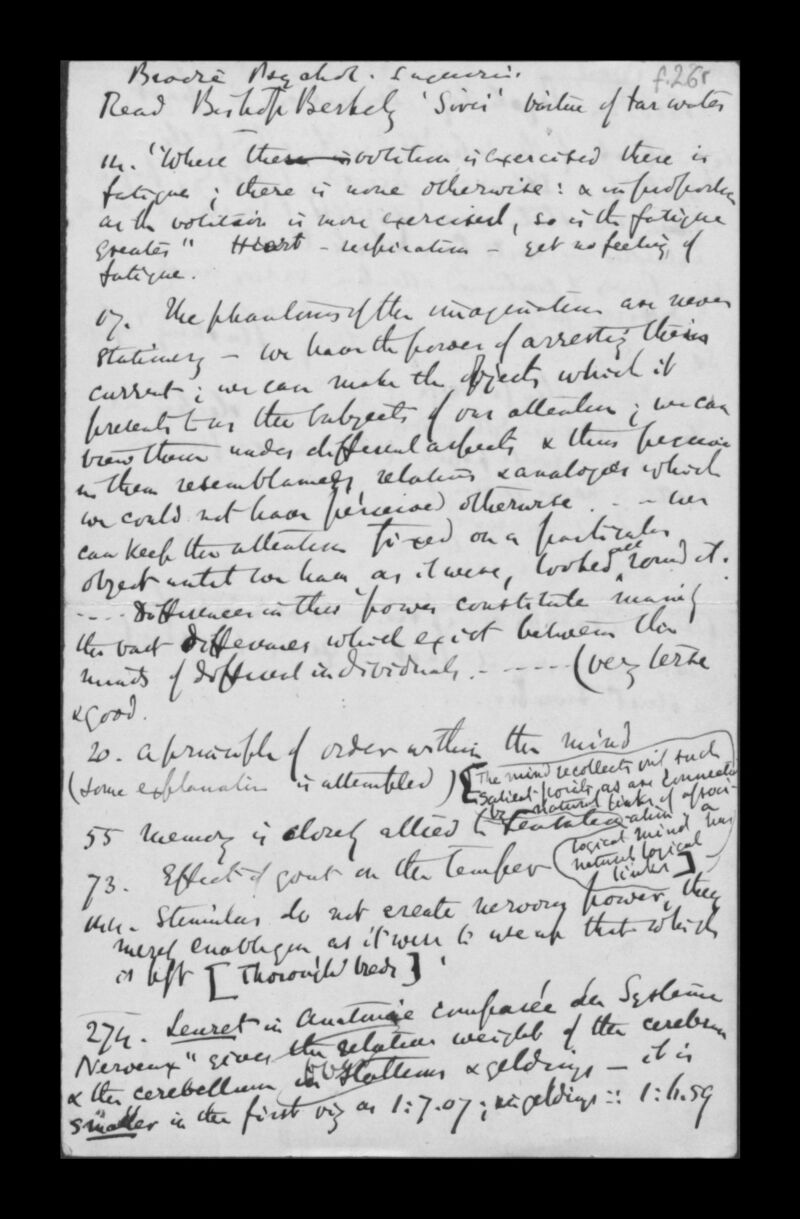 Brodie Psychol. Inquiries. f.26r
Read Bishop Berkely 'Siris' virtue of tar water
14. "Where the volition is exercised there is
fatigue; there is none otherwise: & in proportion
as the volition is more exercised, so is the fatigue
greater" Heart - respiration - yet no feeling of
fatigue.
17. The phantoms of the imagination are never
stationery - we have the power of arresting their
current; we can make the objects which it
presents to us the subjects of our attention; we can
view them under different aspects & thus perceive
in them resemblances, relations & analogies which
we could not have perceived otherwise . - - we
can keep the attention fixed on a particular
object until we have, as it were, looked all round it.
---- Differences in this power constitute mainly
the vast differences which exist between the
minds of different individuals. ----- (very terse
& good.
20. a principle of order within the mind
(some explanation is attempted) [The mind recollects only such
salient points as are connected
by natural links of associ-
ation. a
logical mind has
natural logical
links]
55 Memory is closely allied to
73. Effect of gout on the temper
144. Stimulus do not create nervous power, they
merely enable you as it were to use up that which
is left [Thorough breds]
274. Leuret in Anatomie comparée du Système
Nerveux" gives the relative weight of the cerebrum
& the cerebellum in Stallions & geldings - it is
smaller in the first viz as 1:7.07; in geldings :: 1:6.59